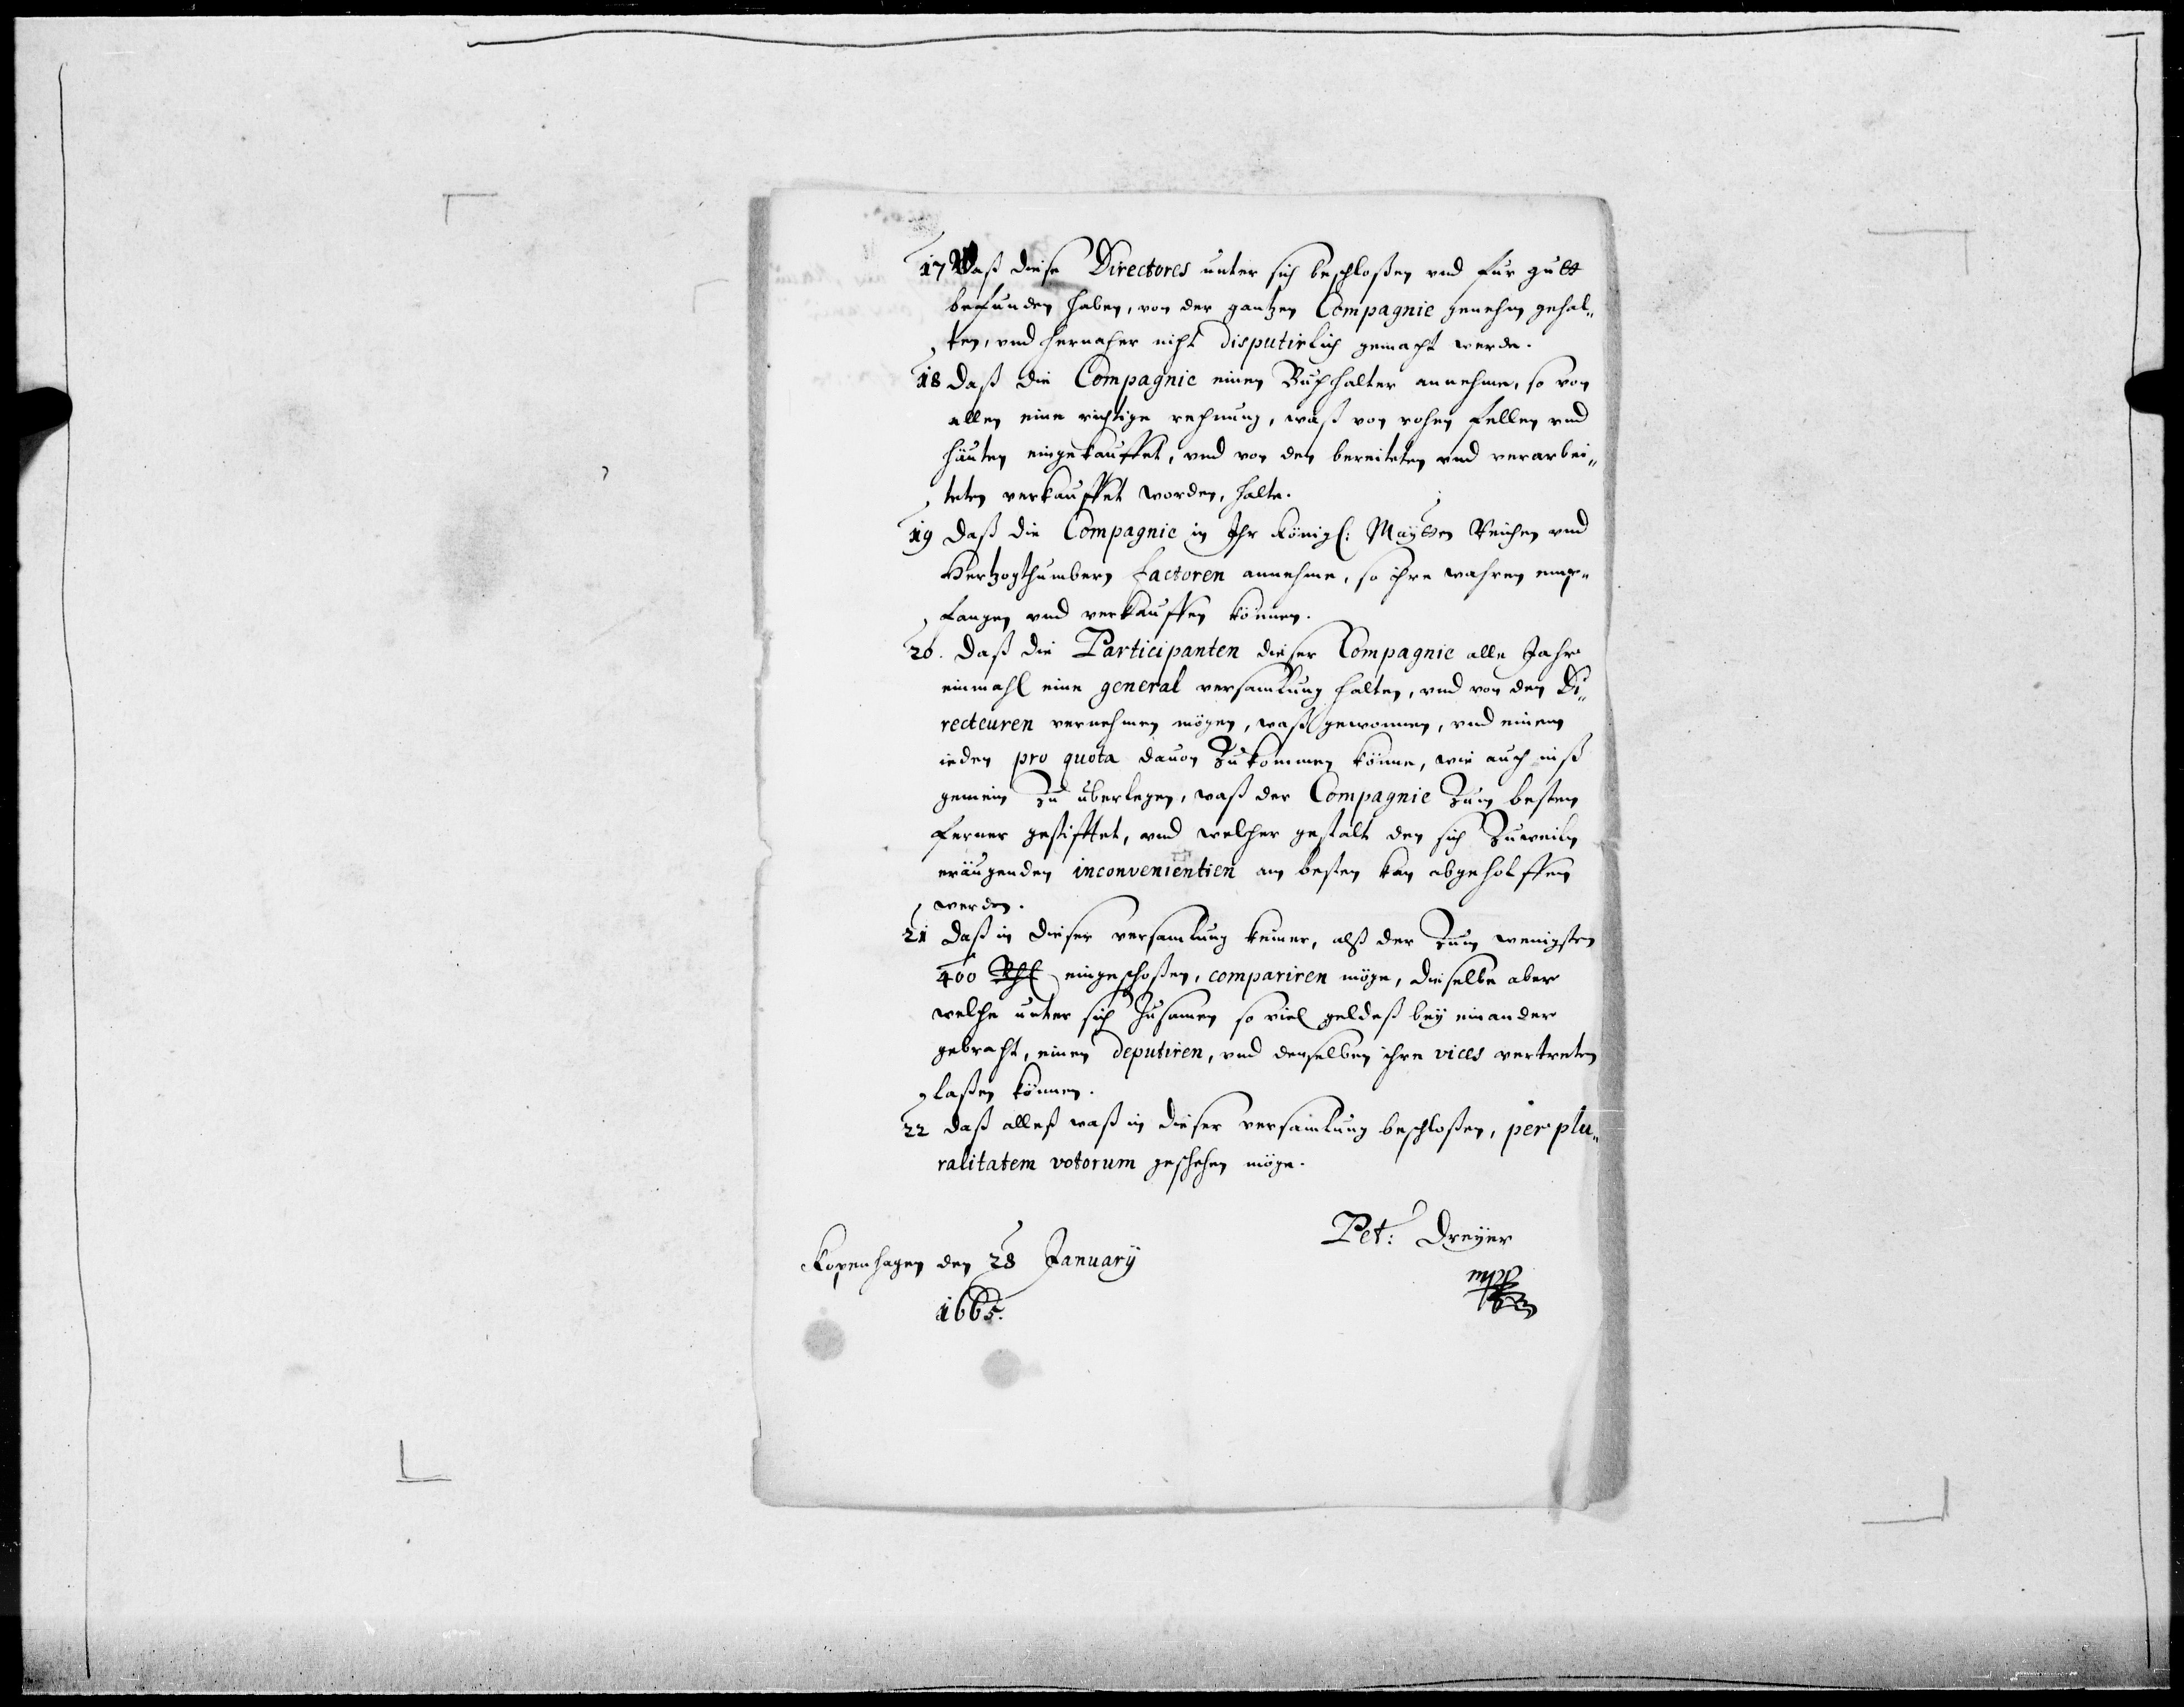 17 Waß diese Directores unter sich beschloßen vnd fur gutt
befunden haben, von der gantzen Compagnie genehm gehal„
ten, vnd hernaher nicht disputirlich gemacht werde.
18 daß die Compagnie einen Buchhalter annehme, so von
allen eine richtige rechnung, waß von rohen fellen vnd
häuten eingekauffet, vnd von den bereiteten vnd verarbei„
teten verkauffet worden, halte.
19 daß die Compagnie in Ihr Königl: Maytten Reichen vnd
Hertzogthumbern factoren annehme, so ihre wahren emp„
fangen vnd verkauffen können.
20. daß die Participanten dieser Compagnie alle Jahr
einmahl eine general versamlung halten, vnd von den Di„
recteuren vernehmen mögen, waß gewonnen, vnd einem
ieden pro quota dauon Zukommen könne, wie auch inß
gemein Zu uberlegen, waß der Compagnie Zum besten
ferner gestifftet, vnd welcher gestalt den sich Zuweiln
eräugenden inconvenientien am besten kan abgeholffen
werden.
21 daß in dieser versamlung keiner, alß der Zum wenigsten
400 Rthl eingeschoßen, compariren möge, dieselbe aber
welche unter sich Zusamen so viel geldeß bey einander
gebracht, einen deputiren, vnd denselben ihre vices vertreten
laßen können.
22 daß alleß waß in dieser versamlung beschloßen, per plu„
ralitatem votorum geschehen möge.
Pet: Dreyer
mpp
Kopenhagen den 28 January
1665.